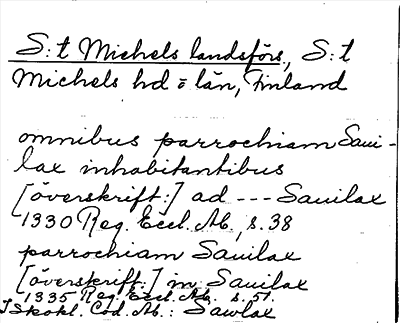 S:t Michels landsförs., S:t
Michels hd o län, Finland
omnibus parrochiam Saui-
lax inhabitantibus
[överskrift:] ad --- Sauilax
1330 Reg. Eccl. Ab., s. 38
parrochiam Sauilax
[överskrift:] in Sauilax
1335 Reg. Eccl. Ab. s. 51.
I Skokl. Cod. Ab.: Sawlax